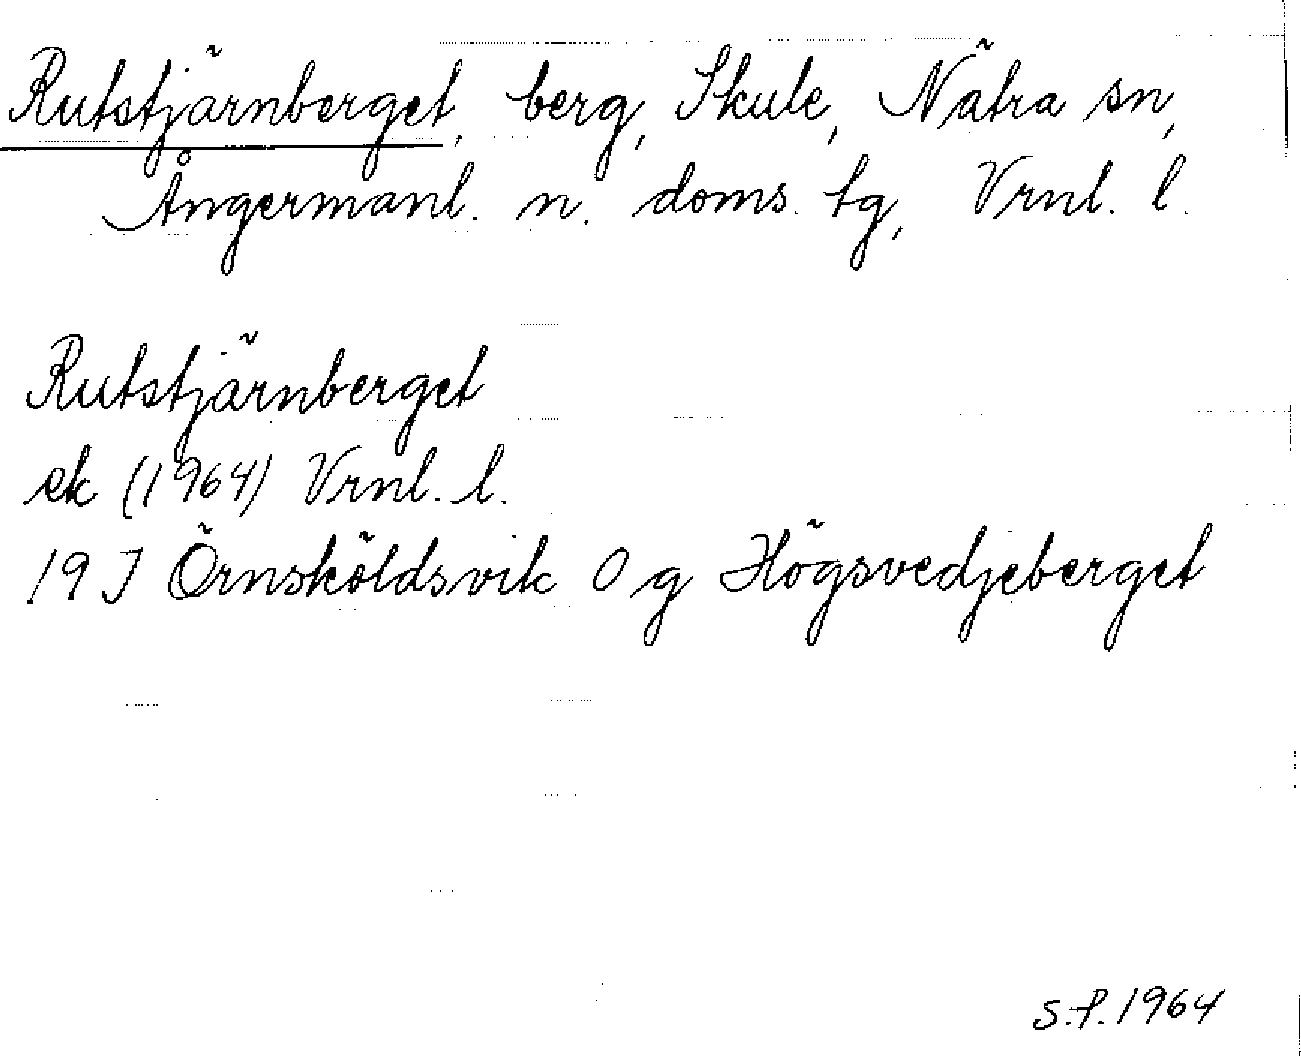 Rutstjärnberget, berg, Skule, Nätra sn,
Ångermanl. n. doms. tg, Vrnl. l.
Rutstjärnberget
ek (1964) Vrnl. l.
19 J Örnsköldsvik 0 g Högsvedjeberget
S.P. 1964